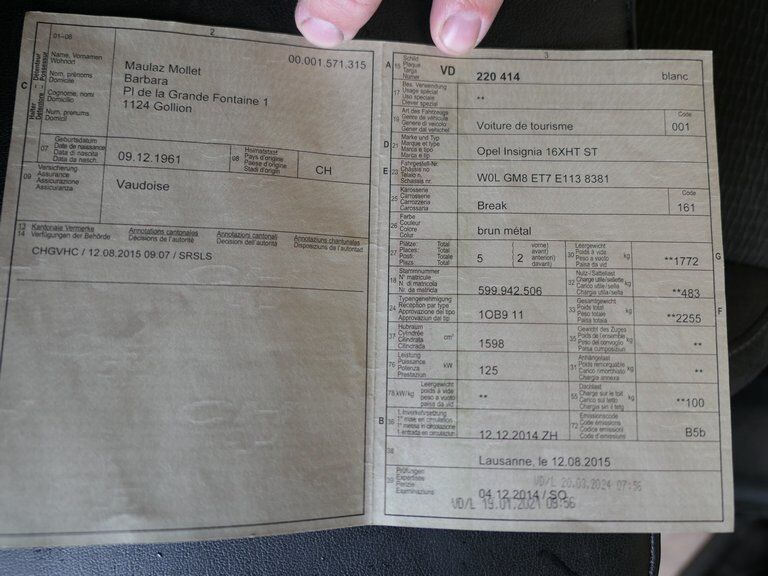 2
01–06
00.001.571.315
C
Halter
Détenteur
Name, Vornamen
Wohnort
Nom, prénoms
Domicile
Cognome, nomi
Domicilio
Num, prenums
Domicil
Maulaz Mollet
Barbara
Pl de la Grande Fontaine 1
1124 Gollion
07
Geburtsdatum
Date de naissance
Data di nascita
Data da nasch.
09.12.1961
08
Heimatstaat
Pays d'origine
Paese d'origine
Stadi d'origin
CH
09
Versicherung
Assurance
Assicurazione
Assicuranza
Vaudoise
13
14
Kantonale Vermerke
Verfügungen der Behörde
Annotations cantonales
Décisions de l'autorité
Annotazioni cantonali
Decisioni dell'autorità
Annotaziuns chantunalas
Disposiziuns da l'autoritad
CHGVHC / 12.08.2015 09:07 / SRSLS
3
A
15
Schild
Plaque
Targa
Numer
VD
220 414
blanc
17
Bes. Verwendung
Usage spécial
Uso speciale
Diever spezial
**
19
Art des Fahrzeugs
Genre de véhicule
Genere di veicolo
Gener dal vehichel
Voiture de tourisme
Code
001
D
21
Marke und Typ
Marque et type
Marca e tipo
Marca e tip
Opel Insignia 16XHT ST
E
23
Fahrgestell-Nr.
Châssis no
Telaio n.
Schassis nr.
W0L GM8 ET7 E113 8381
25
Karosserie
Carrosserie
Carrozzeria
Carossaria
Break
Code
161
26
Farbe
Couleur
Colore
Colur
brun métal
27
Plätze: Total
Places: Total
Posti: Totale
Plazs: Total
5
vorne)
avant)
anteriori)
davant)
2
30
Leergewicht
Poids à vide
Peso a vuoto
Paisa da vid
kg
**1772
G
18
Stammnummer
N° matricule
N. di matricola
Nr. da matricla
599.942.506
32
Nutz-/Sattellast
Charge utile/sellette
Carico utile/sella
Chargia utila/sella
kg
**483
24
Typengenehmigung
Réception par type
Approvazione del tipo
Approvaziun dal tip
1OB9 11
33
Gesamtgewicht
Poids total
Peso totale
Paisa totala
kg
**2255
F
37
Hubraum
Cylindrée
Cilindrata
Cilindrada
cm³
1598
35
Gewicht des Zuges
Poids de l'ensemble
Peso del convoglio
Paisa cumposiziun
kg
**
76
Leistung
Puissance
Potenza
Prestaziun
kW
125
31
Anhängelast
Poids remorquable
Carico rimorchiato
Chargia annexa
kg
**
78
kW/kg
Leergewicht
poids à vide
peso a vuoto
paisa da vid
**
55
Dachlast
Charge sur le toit
Carico sul tetto
Chargia sin il tetg
kg
**100
B
36
1. Inverkehrsetzung
1re mise en circulation
1a messa in circolazione
1. entrada en circulaziun
12.12.2014 ZH
72
Emissionscode
Code émissions
Codice emissioni
Code d'emissiuns
B5b
38
Lausanne, le 12.08.2015
39
Prüfungen
Expertises
Perizie
Examinaziuns
VD/L 20.03.2024 07:56
04.12.2014 / SO
VD/L 19.01.2021 08:56